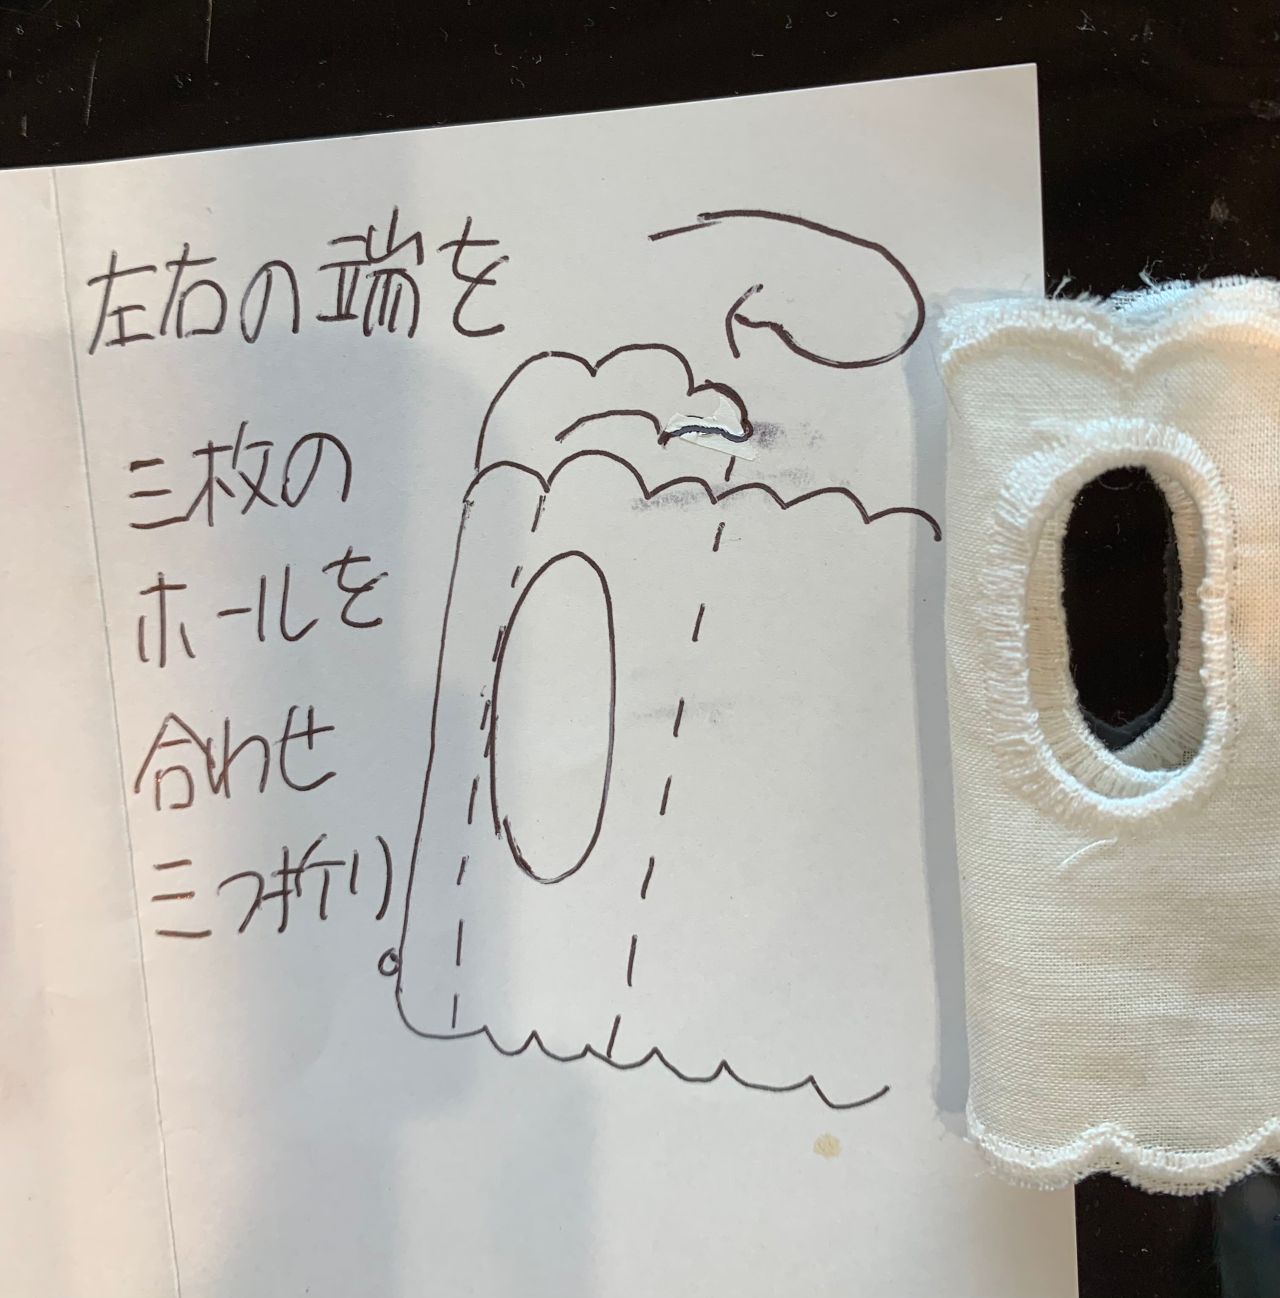 左右の端を
三枚の
ホールを
合わせ
三つ折り